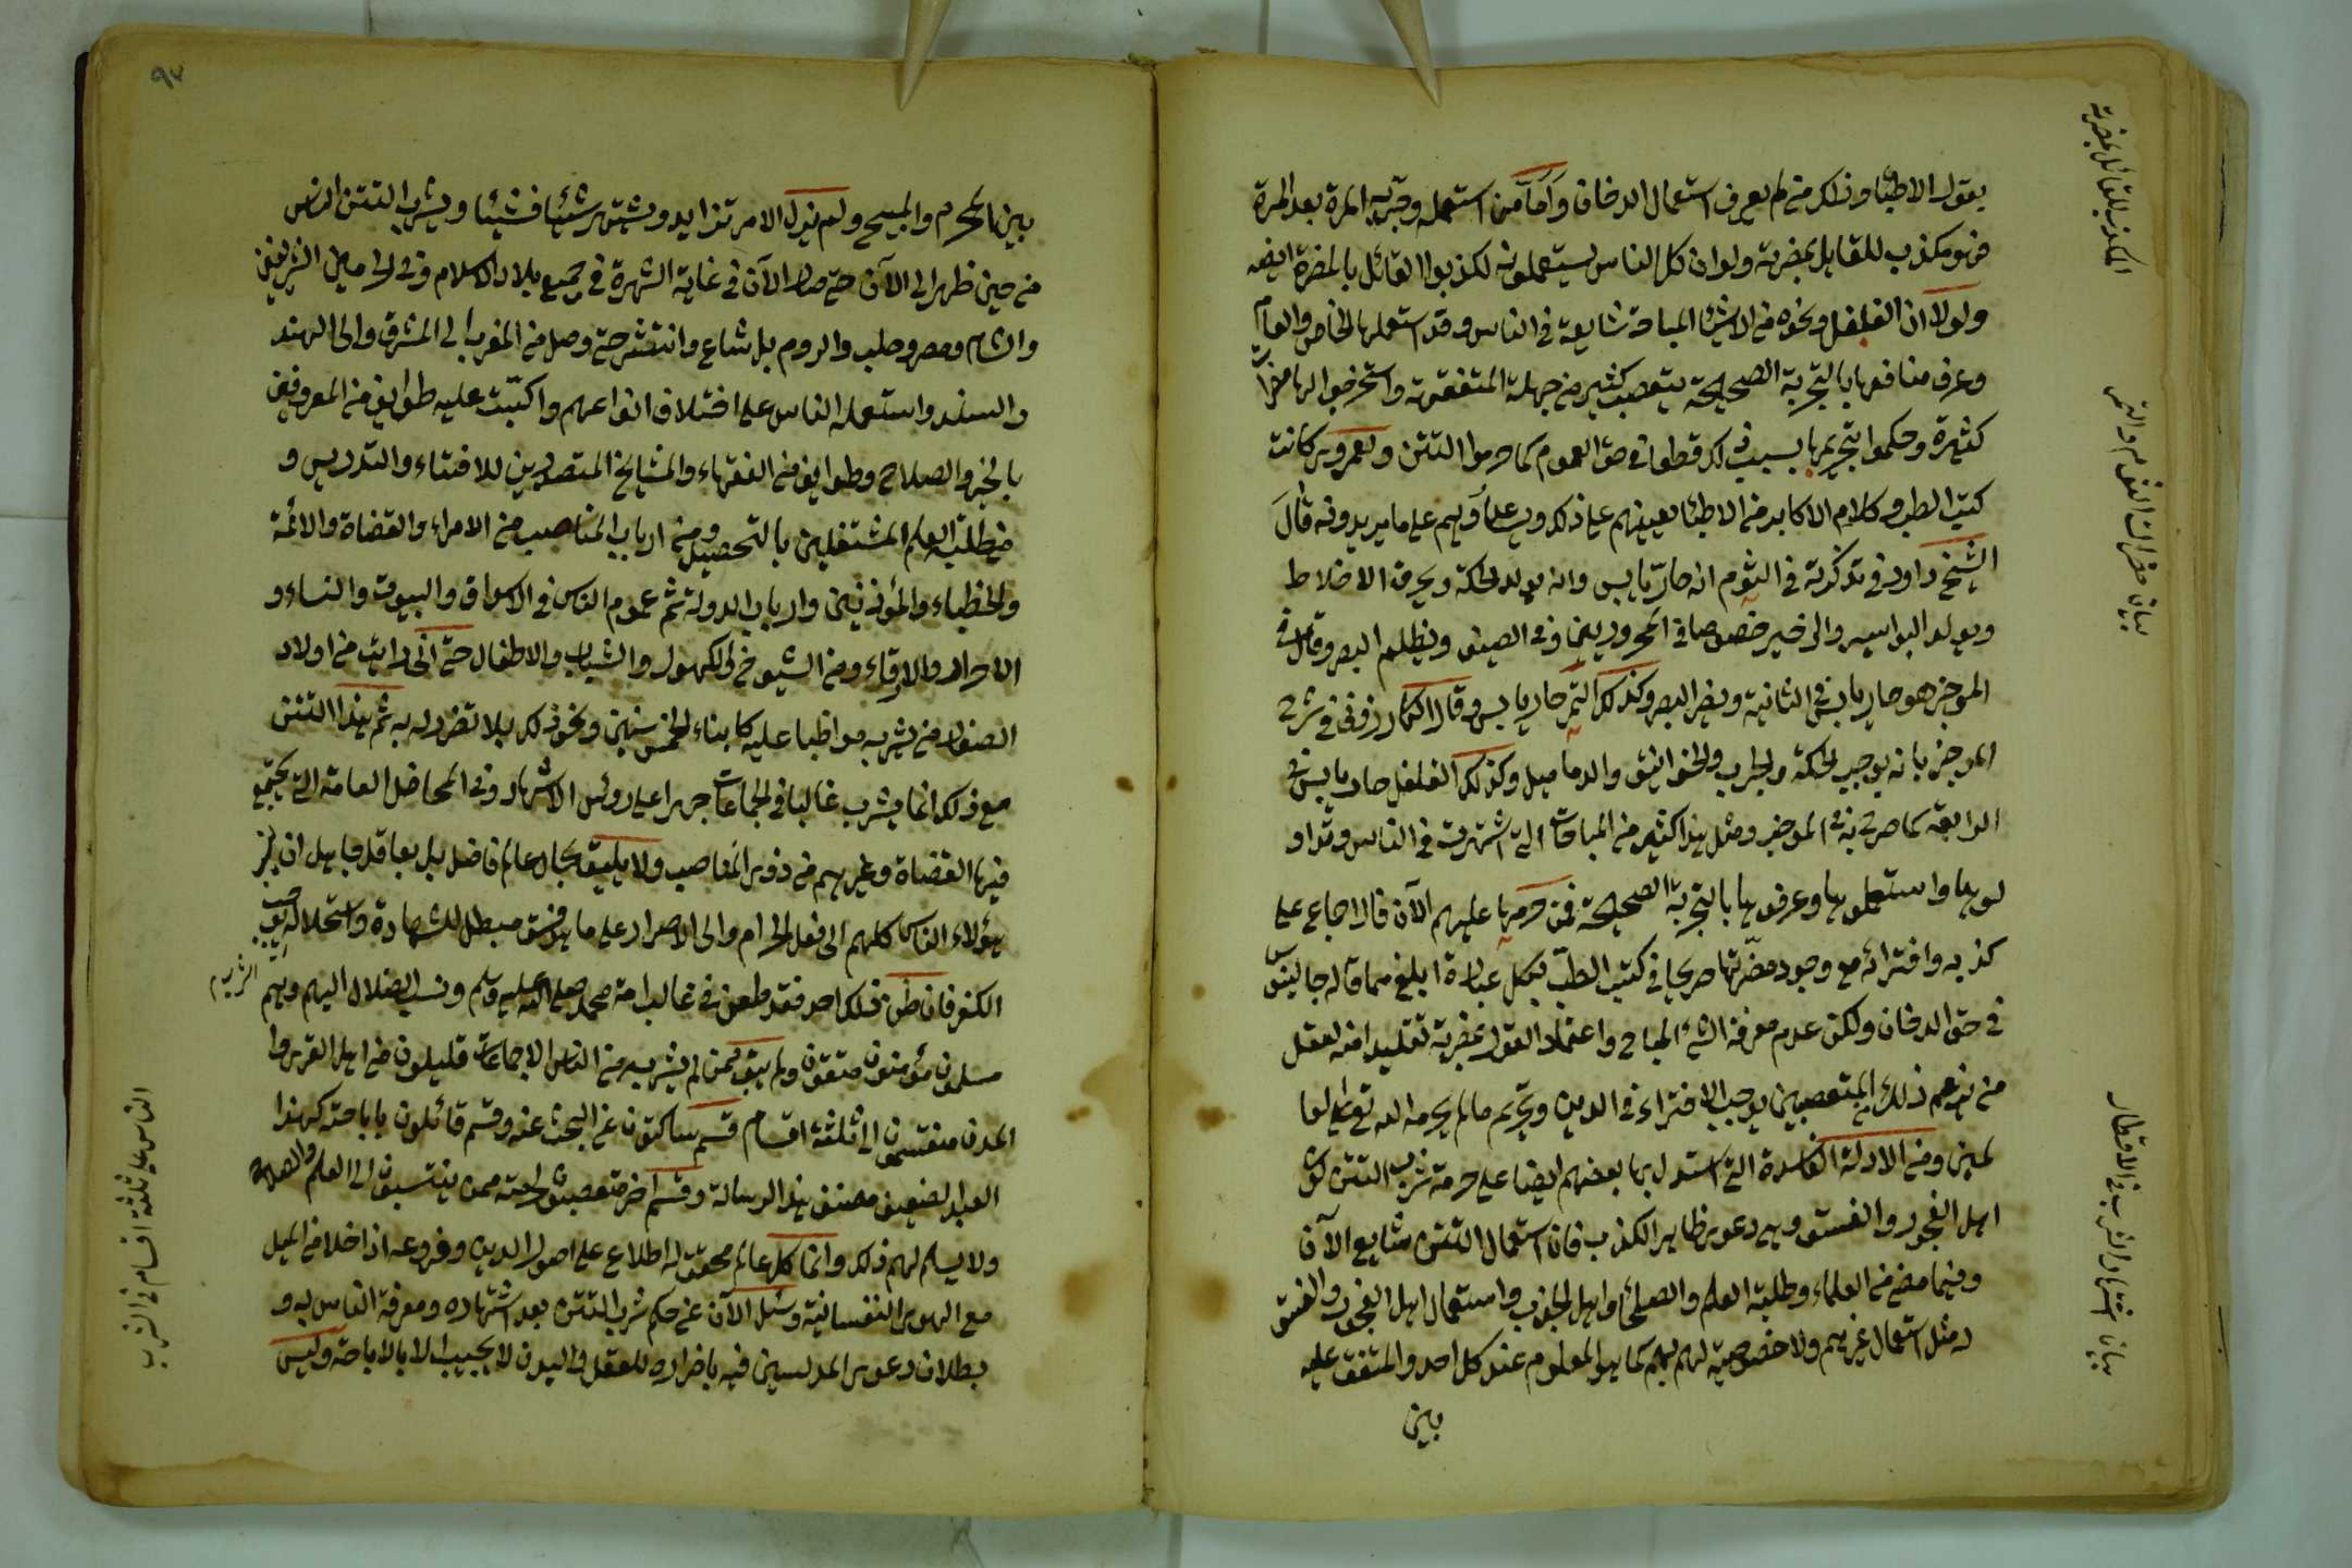 يقول الاطباء وذلك من لم يعرف استعمال الدخان واما من استعمله وجربه المرة بعد المرة
فهو مكذب للقايل بمضرته ولو ان كل الناس يستعملونه لكذبوا القائل بالمضرة ايضه
ولولا ان الفلفل ونحوه من الاشياء المباحة شايعة في الناس وقد استعملها الخاص والعام
وعرف منافعها بالتجربة الصحيحة يتعصب كثير من جهلة المتفقهة واستخرجوا لها مضرات
كثيرة وحكموا بتحريمها بسبب ذلك قطعا في حق العموم كما حرموا التتن ولعمري كانت
كتب الطب وكلام الاكابر من الاطباء يعينهم على ذلك ويساعدونهم على ما يريدونه قال
الشيخ داود في تذكرته في الثوم انه حار يابس وانه يولد الحكة ويحرق الاخلاط
ويولد البواسير والزحير خصوصا في المحرورين وفي الصيف ويظلم البصر وقال في
الموجز هو حار يابس في الثانية ويضر البصر وكذلك التمر حار يابس وقال الكازروني في شرح
الموجز بانه يوجب الحكة والجرب والخوانيق والدماميل وكذلك الفلفل حار يابس في
الرابعة كما صرح به في الموجز ومثل هذا كثير من المباحات التي اشتهرت في الناس وتداو
لوها واستعملوها وعرفوها بالتجربة الصحيحة فمن حرمها عليهم الآن فالاجماع على
كذبه وافترائه مع وجود مضرتها صريحا في كتب الطب بكل عبارة ابلغ مما قاله جالينوس
في حق الدخان ولكن عدم معرفة الشئ المباح واعتماد القول بمضرته تقليدا منه لعقل
من يزعم ذلك المتعصبين يوجب الافتراء في الدين وتحريم ما لم يحرمه الله تعالى
لمين ومن الادلة الفاسدة التي استدل بها بعضهم ايضا على حرمة شرب التتن كون
اهل الفجور والفسق وهي دعوى ظاهر الكذب فان استعمال التتن شايع الآن
وفيما مضى من العلماء وطلبة العلم والصلحاء واهل الجذب واستعمال اهل الفجور والفسق
له مثل استعمال غيرهم ولا خصوصية لهم بهم كما هو المعلوم عند كل احد والمتفق عليه
بين
المكذب للقائل بمضرته
بيان مضرات الثوم والتمر
بيان اشتهار الشرب في الاقطار
٩٧
بين المحرم والمبيح ولم يزل الامر تزايد ويشتهر شيئا فشيئا ويشرب التتن الناس
من حين ظهر الى الآن حتى صار الآن في غاية الشهرة في جميع بلاد الاسلام وفي الحرمين الشريفين
والشام ومصر وحلب والروم بل شاع وانتشر حتى وصل من المغرب الى المشرق والى الهند
والسند واستعمله الناس على اختلاف انواعهم واكبت عليه طوايف من المعروفين
بالخير والصلاح وطوايف من الفقهاء والمشايخ المتصدرين للافتاء والتدريس و
من طلبة العلم المشتغلين بالتحصيل ومن ارباب المناصب من الامراء والقضاة والائمة
والخطباء والمؤذنين وارباب الدولة ثم عموم الناس في الاسواق والبيوت والنساء و
الاحرار والارقاء ومن الشيوخ والكهول والشباب والاطفال حتى اني رايت من اولاد
الصغار من يشربه مواظبا عليه كابناء الخمس سنين ونحو ذلك بلا تضرر له به ثم هذا التتن
مع ذلك انما يشرب غالبا في الجماعات جهرا على رؤس الاشهاد وفي المحافل العامة التي يجتمع
فيها القضاة وغيرهم من ذوي المناصب ولا يليق بحال عالم فاضل بل بعاقل جاهل ان ينسب
هؤلاء الناس كلهم الى فعل الحرام والى الاصرار على ما هو فسق مبطل للشهادة واستحلاله يوجب
الكفر فان ظن ذلك احد فقد طعن في غالب امة محمد صلى الله عليه وسلم ونسب الضلال اليهم وهم
مسلمون مؤمنون متقون ولم يبق ممن لم يشربه من الناس الا جماعات قليلون من اهل القرى وا
لمدن منقسمون الى ثلثة اقسام قسم ساكتون عن البحث عنه وقسم قائلون باباحته كهذا
العبد الضعيف مصنف هذا الرسالة وقسم آخر متعصبون لحرمته ممن ينتسبون الى العلم والصلاح
ولا يسلم لهم ذلك وانما كل عالم محقق له اطلاع على اصول الدين وفروعه اذا خلا من الميل
مع الهوى النفسانية وسئل الآن عن حكم شرب التتن بعد اشتهاره ومعرفة الناس به و
بطلان دعوى المدلسين فيه باضراره للعقل والبدن لا يجيب الا بالاباحة وليس
الناس على ثلثة اقسام في الشرب